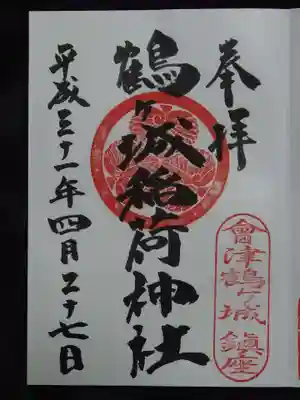 奉拝
會津鶴ヶ城 鎮座
鶴ヶ城稲荷神社
平成三十一年四月二十七日